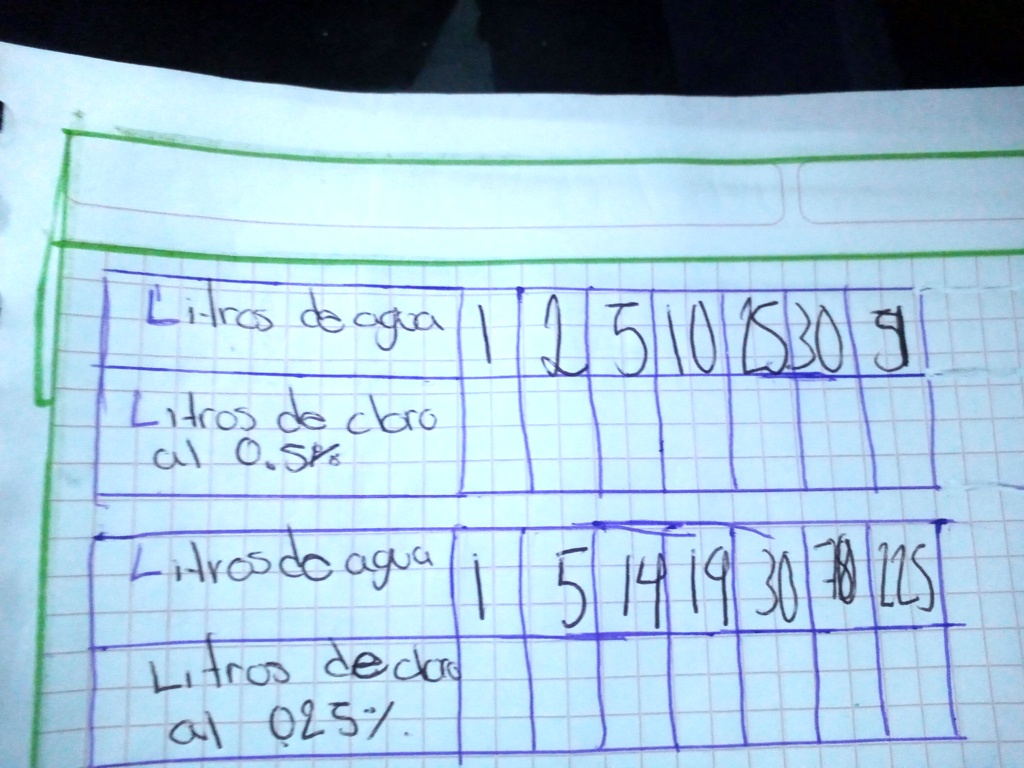 Litros de agua 1 2 5 10 25 30
Litros de cloro
al 0.5%
Litros de agua 1 5 14 19 30 225
Litros de cloro
al 0.25%.